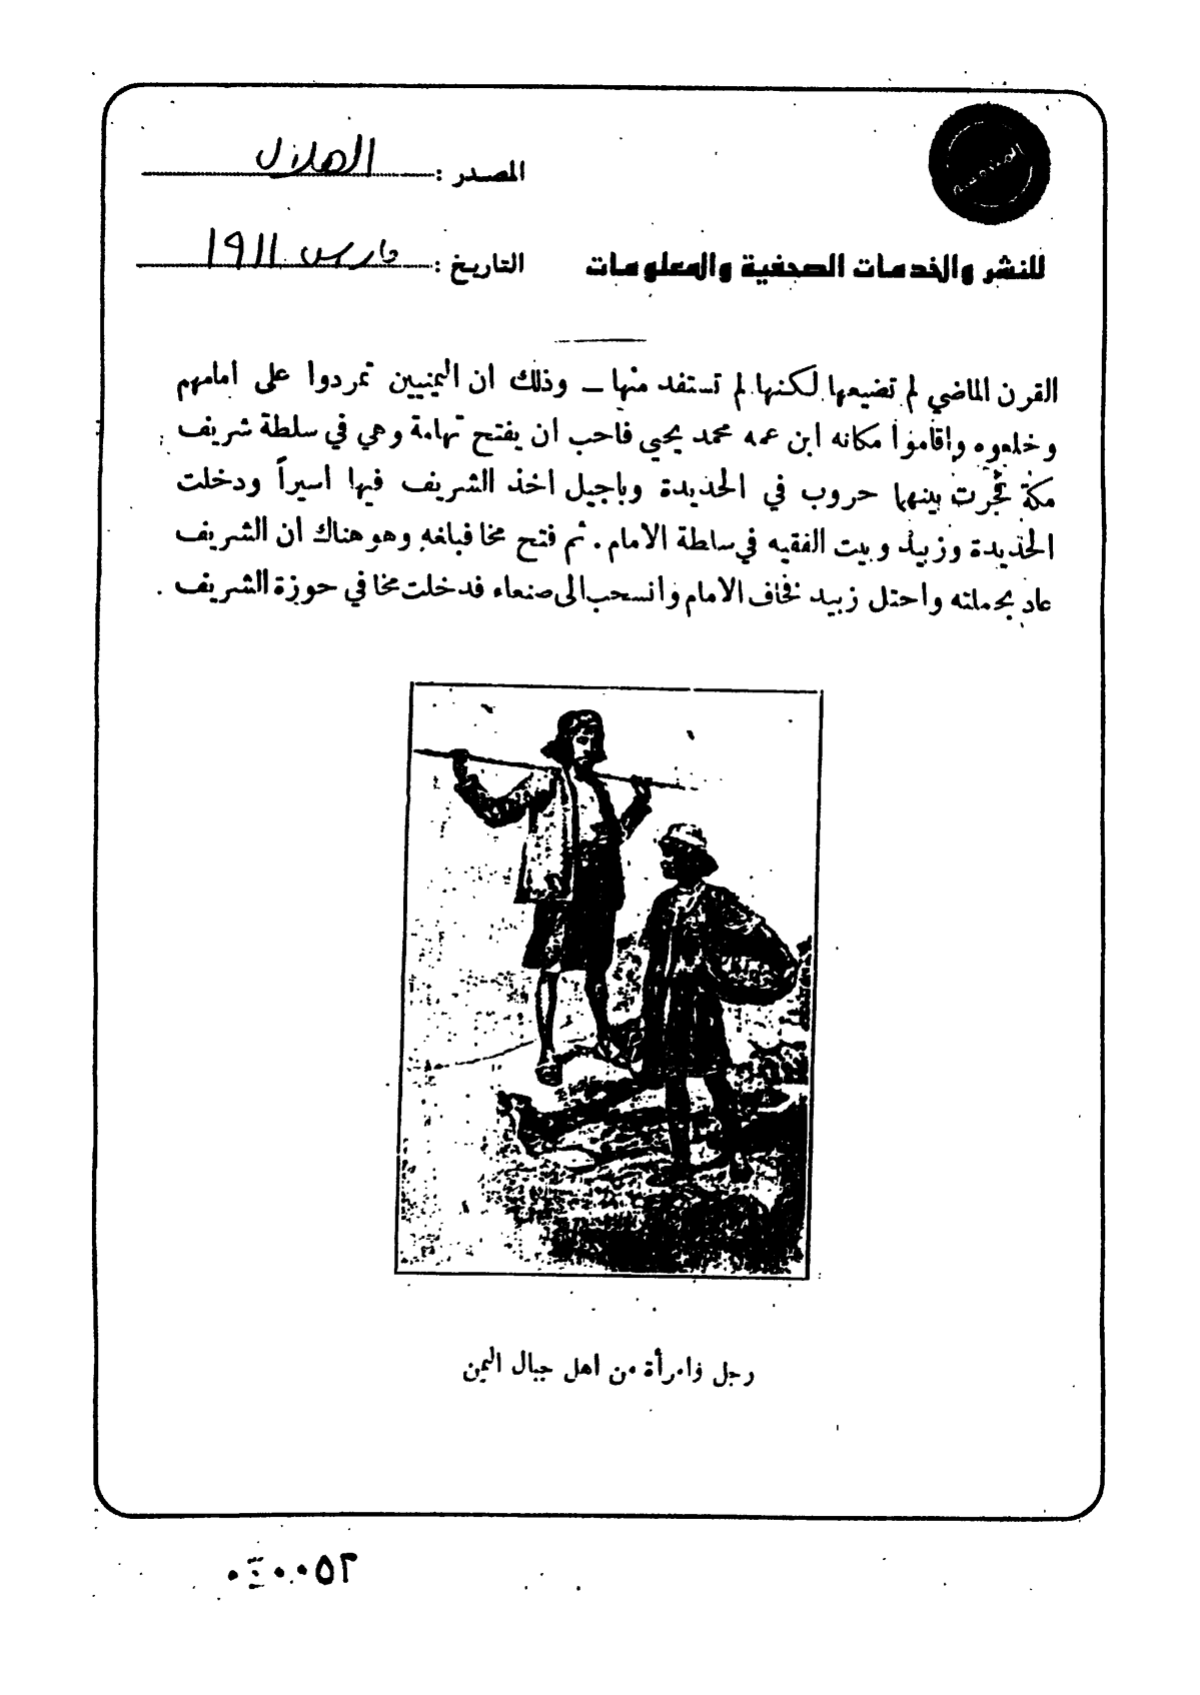 المصدر : الهلال
للنشر والخدمات الصحفية والمعلومات
التاريخ : مارس ١٩١١
القرن الماضي لم تضيعها لكنها لم تستفد منها ــ وذلك ان اليمنيين تمردوا على امامهم
وخلعوه واقاموا مكانه ابن عمه محمد يحيى فاحب ان يفتح تهامة وهي في سلطة شريف
مكة فجرت بينهما حروب في الحديدة وباجيل اخذ الشريف فيها اسيراً ودخلت
الحديدة وزبيد وبيت الفقيه في سلطة الامام . ثم فتح مخا فبلغه وهو هناك ان الشريف
عاد بحملته واحتل زبيد فخاف الامام وانسحب الى صنعاء فدخلت مخا في حوزة الشريف .
رجل وامرأة من اهل جبال اليمن